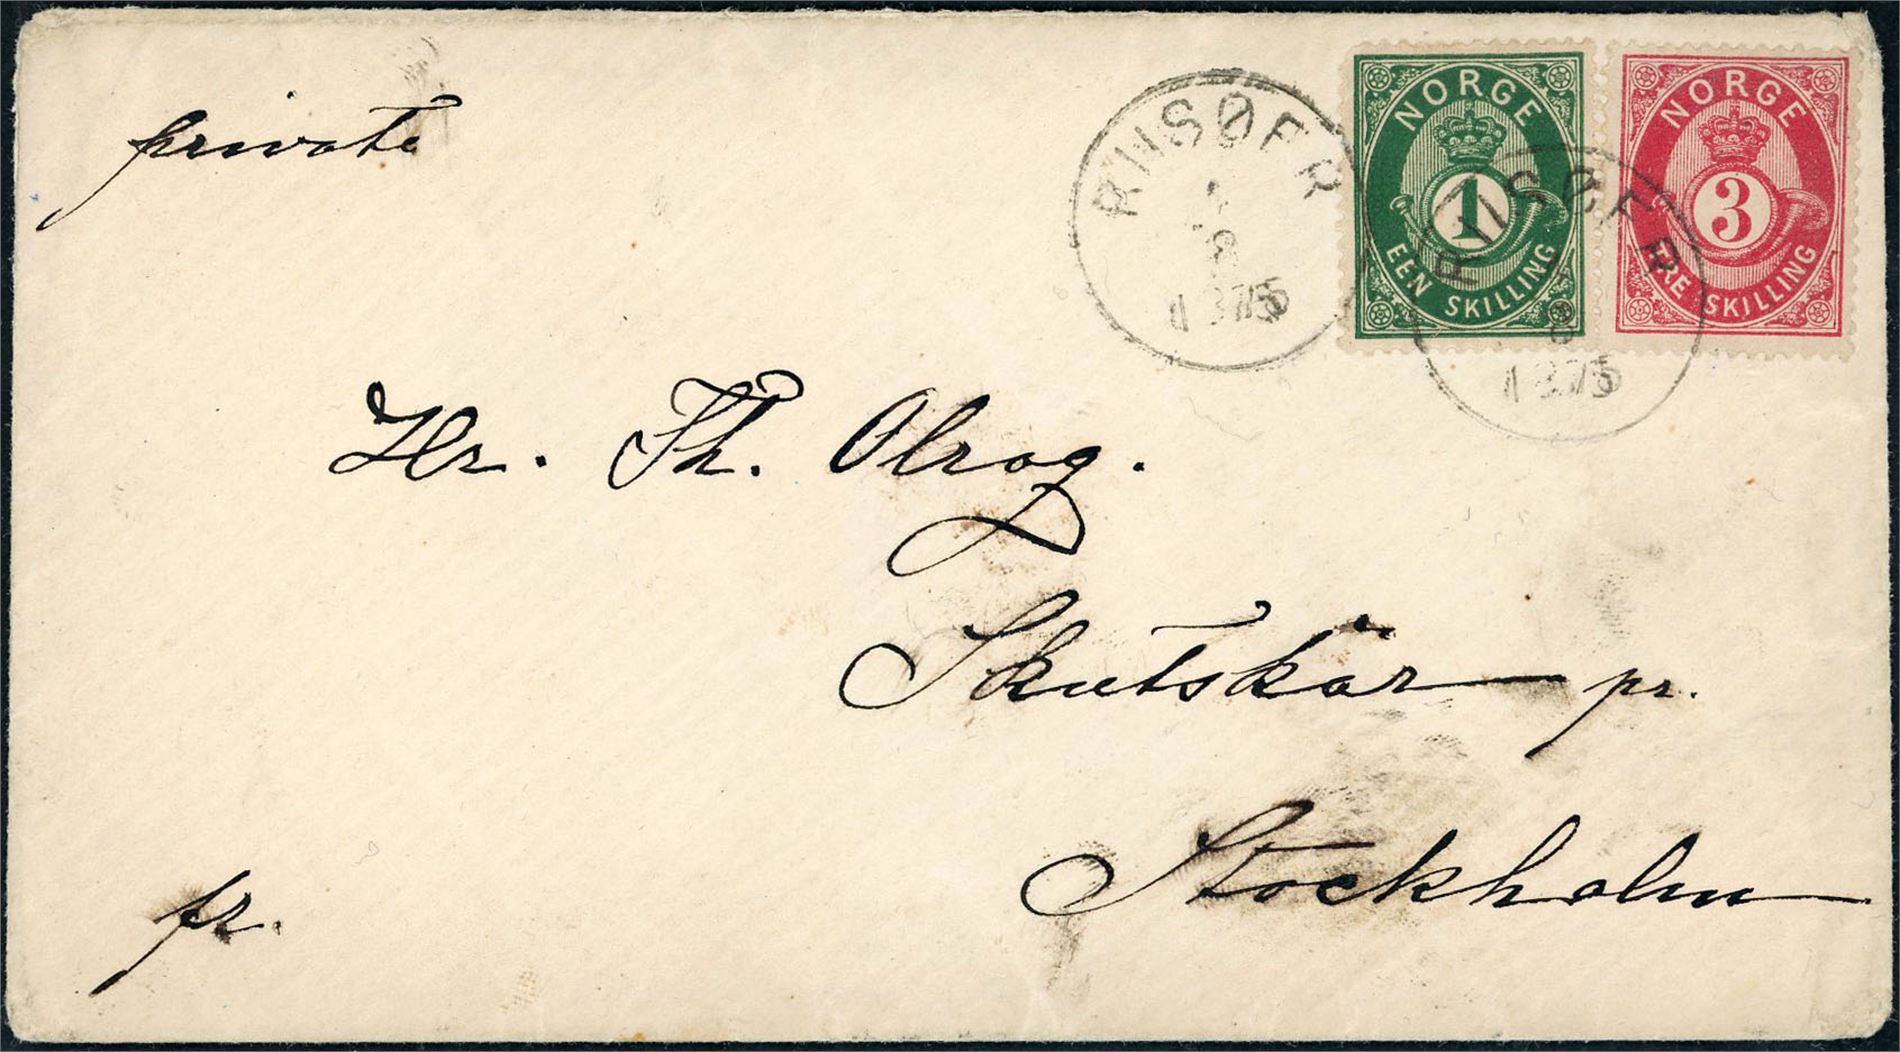 private
RIISØER
4
8
1875
NORGE
1
EEN SKILLING
NORGE
3
TRE SKILLING
RIISØER
8
1875
Hr. Th. Olrog.
Skutskär pr.
Stockholm
fr.